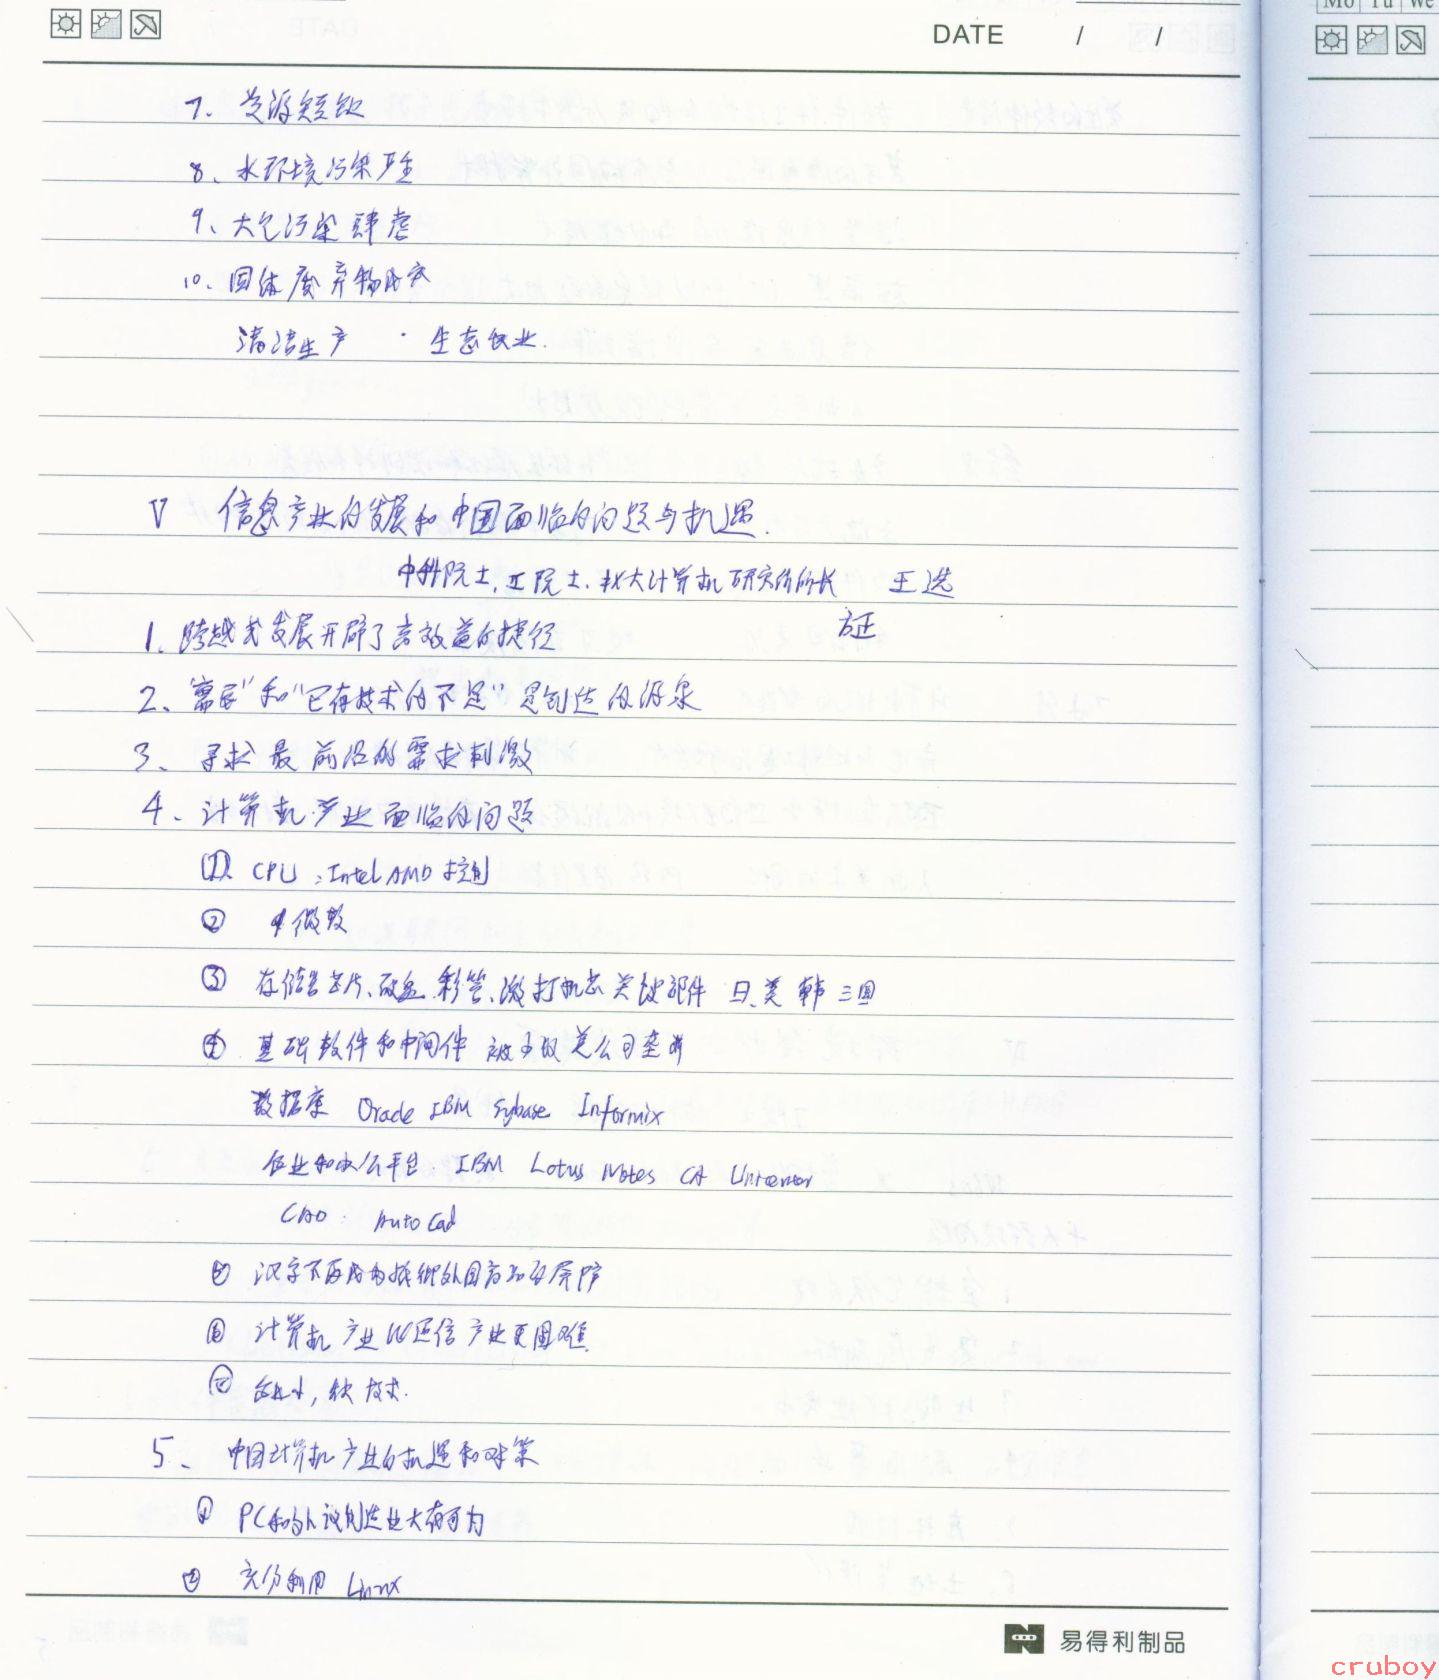 Mo Tu We
DATE / /
7、资源短缺
8、水环境污染严重
9、大气污染肆虐
10、固体废弃物
清洁生产 · 生态农业.
V 信息产业的发展和中国面临的问题与机遇.
中科院士,工院士.北大计算机研究所所长 王选
方正
1、跨越式发展开辟了高效益的捷径
2、"需要"和"已有技术的不足"是创造的源泉
3、寻求最前沿的需求刺激
4、计算机产业面临的问题
① CPU,Intel AMD 控制
② 微软
③ 存储器芯片、硬盘、彩管、激打机芯关键部件 日、美 韩 三国
④ 基础软件和中间件 被美公司垄断
数据库 Oracle IBM Sybase Informix
企业和办公平台. IBM Lotus Notes CA Unicenter
CAD. AutoCad
⑤ 汉字不再成为抵御外国产品的屏障
⑥ 计算机产业比通信产业更困难
⑦ 技术.
5、中国计算机产业的机遇和对策
① PC和外设制造业大有可为
② 充分利用 Linux
易得利制品
cruboy